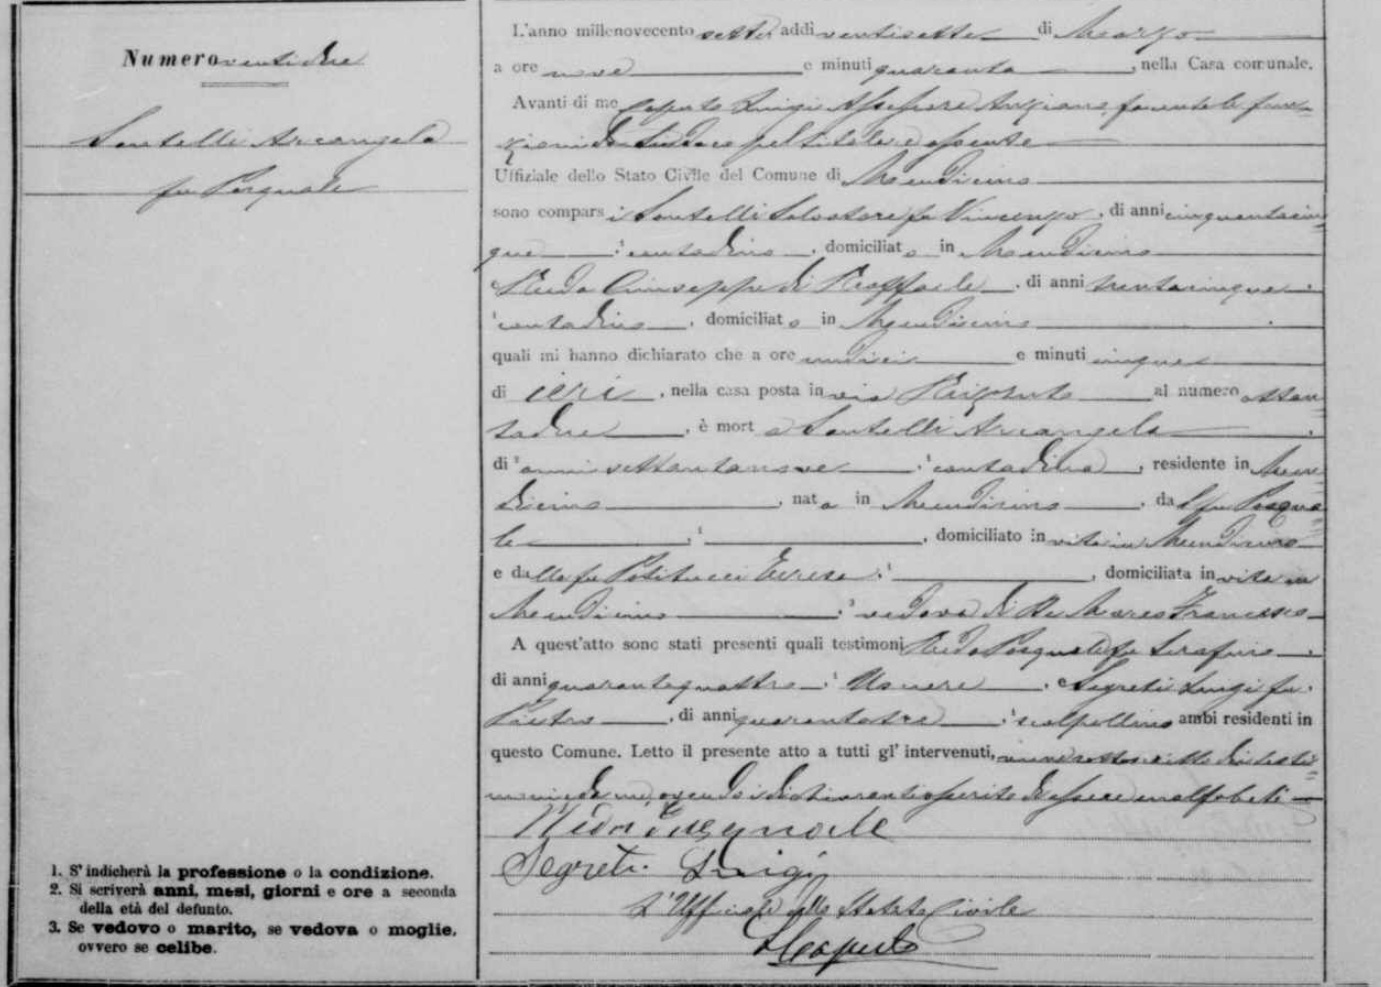 Numero ventidue
Santelli Arcangela
fu Pasquale
1. S'indicherà la professione o la condizione.
2. Si scriverà anni, mesi, giorni e ore a seconda
della età del defunto.
3. Se vedovo o marito, se vedova o moglie,
ovvero se celibe.
L'anno millenovecento sette, addi ventisette di Marzo
a ore nove e minuti quaranta, nella Casa comunale.
Avanti di me Caputo Luigi Assessore Anziano, facente le fun=
zioni da Sindaco pel titolare assente
Uffiziale dello Stato Civile del Comune di Mendicino
sono comparsi Santelli Salvatore fu Vincenzo, di anni cinquantacin=
que, contadino, domiciliato in Mendicino
Giuseppe di Raffaele, di anni trentacinque,
contadino, domiciliato in Mendicino
quali mi hanno dichiarato che a ore undici e minuti cinque
di ieri, nella casa posta in via al numero ottan=
tadue, è morta Santelli Arcangela
di anni settantanove, contadina, residente in Men=
dicino, nata in Mendicino, dal fu Pasqua=
le, domiciliato in vita in Mendicino
e dalla fu Politucci Teresa, domiciliata in vita in
Mendicino, vedova di De Marco Francesco
A quest'atto sono stati presenti quali testimoni Pasquale fu Serafino
di anni quarantaquattro, Usciere, e Segreti Luigi fu
Pietro, di anni quarantatre, scalpellino ambi residenti in
questo Comune. Letto il presente atto a tutti gl' intervenuti, viene sottoscritto dai testi=
moni e da me, avendo i dichiaranti asserito di essere analfabeti
Pasquale
Segreti Luigi
L'Ufficiale dello Stato Civile
LCaputo